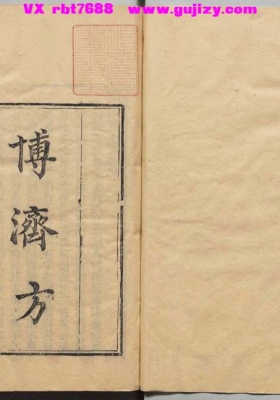 VX rbt7688 www.gujizy.com
博濟方